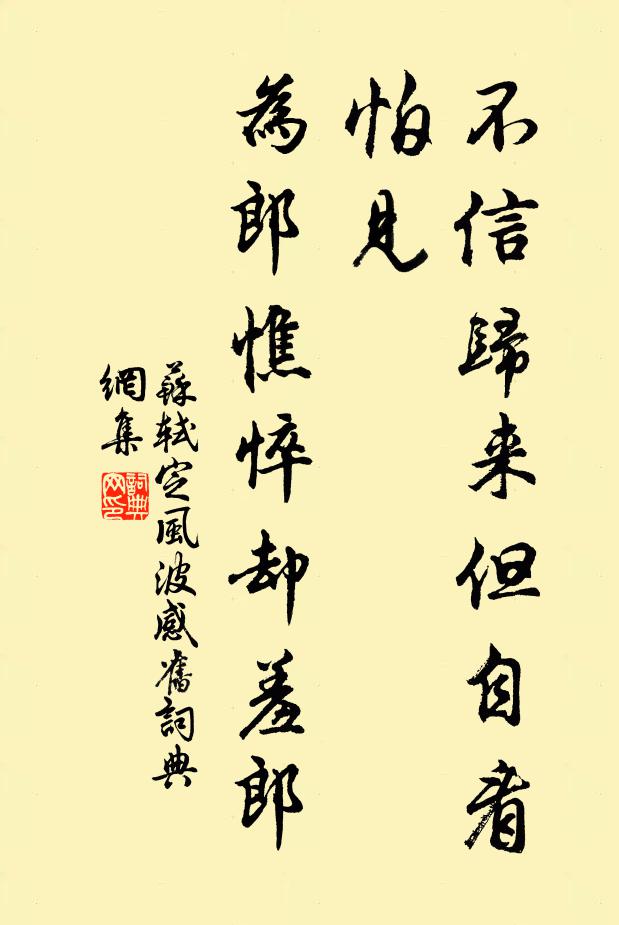 不信歸来但自看
怕見
為郎憔悴却羞郎
蘇軾定風波感舊詞典
網集
詞典
网印